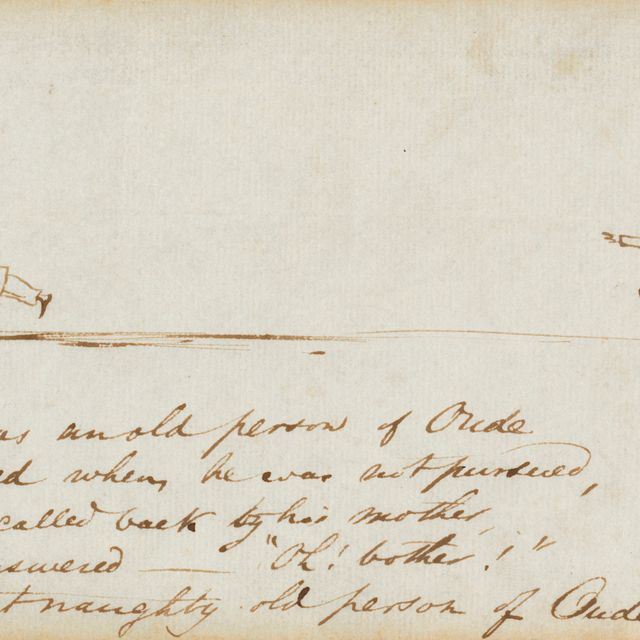 as an old person of Oude
ed when, he was not pursued,
called back by his mother,
nswered — "Oh! bother!"
t naughty old person of Oud